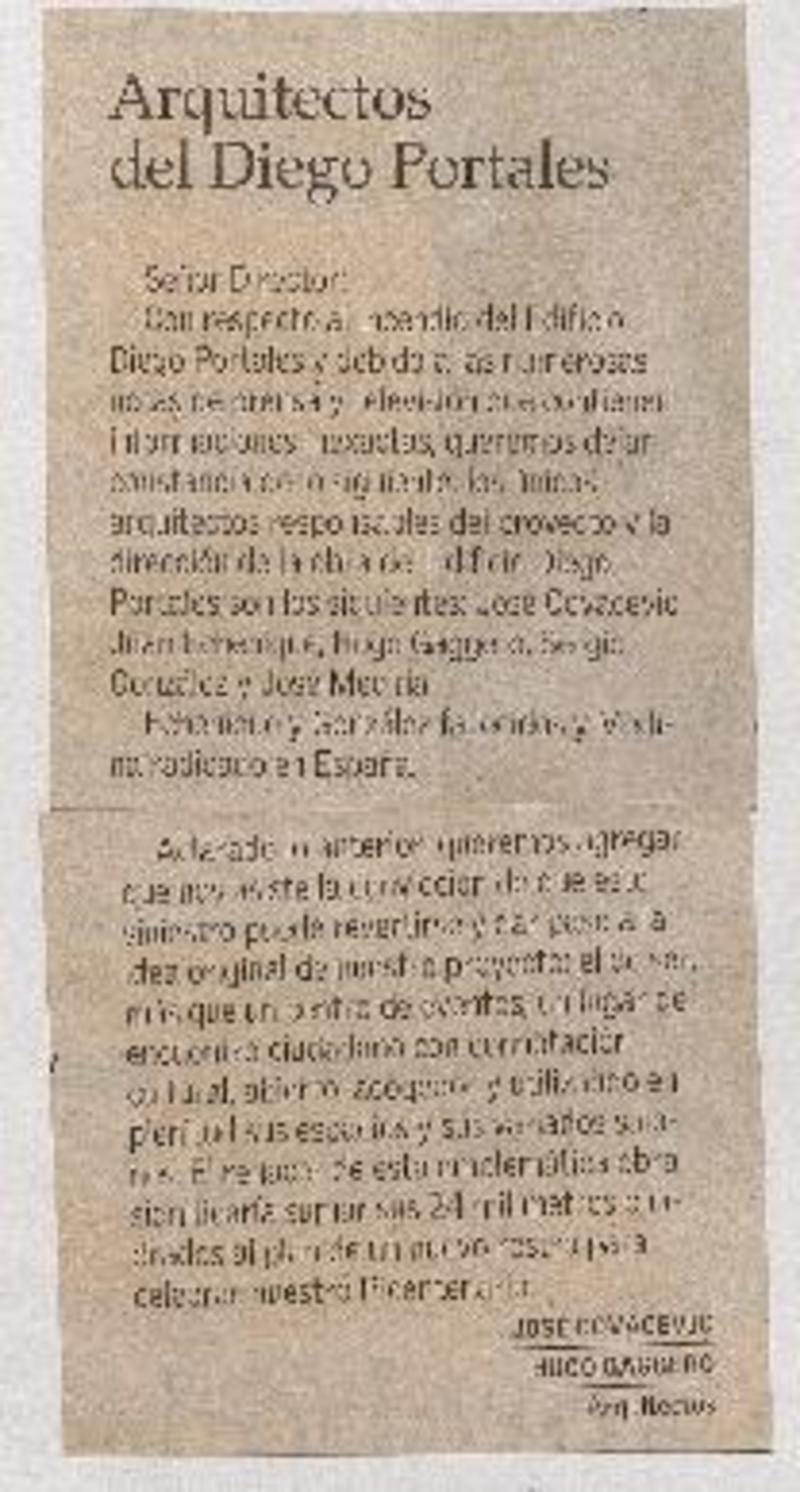 Arquitectos
del Diego Portales
Señor Director:
Con respecto al incendio del Edificio
Diego Portales y debido a las numerosas
notas de prensa y televisión que contienen
informaciones inexactas, queremos dejar
constancia de lo siguiente: los únicos
arquitectos responsables del proyecto y la
dirección de la obra del Edificio Diego
Portales son los siguientes: José Covacevic
Juan Echenique, Hugo Gaggero, Sergio
González y José Medina
Echenique y González fallecidos y Medi-
na radicado en España.
Aclarado lo anterior, queremos agregar
que nos asiste la convicción de que este
siniestro puede revertirse y dar paso a la
idea original de nuestro proyecto: el de ser,
más que un centro de eventos, un lugar de
encuentro ciudadano con connotación
cultural, abierto, acogedor y utilizando en
plenitud sus espacios y sus variados salo-
nes. El renacer de esta emblemática obra
significaría sumar sus 24 mil metros cua-
drados al plan de un nuevo rostro para
celebrar nuestro Bicentenario.
JOSÉ COVACEVIC
HUGO GAGGERO
Arquitectos